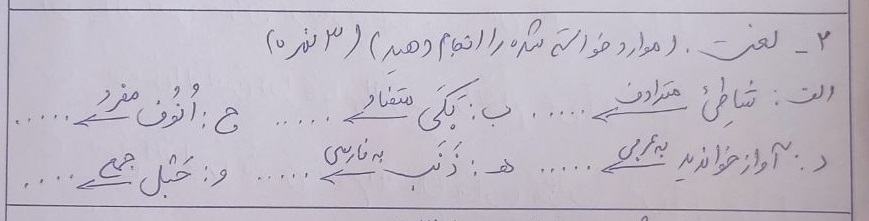 ۲ - لغت . (موارد خواسته شده را انجام دهید) (۳ نمره)
الف : شاطِئ مترادف ..... ب : بَکَی متضاد ..... ج : اُنُوف مفرد .....
د : آواز خواندید به عربی ..... هـ : ذَنَب به فارسی ..... و : حَبْل جمع .....